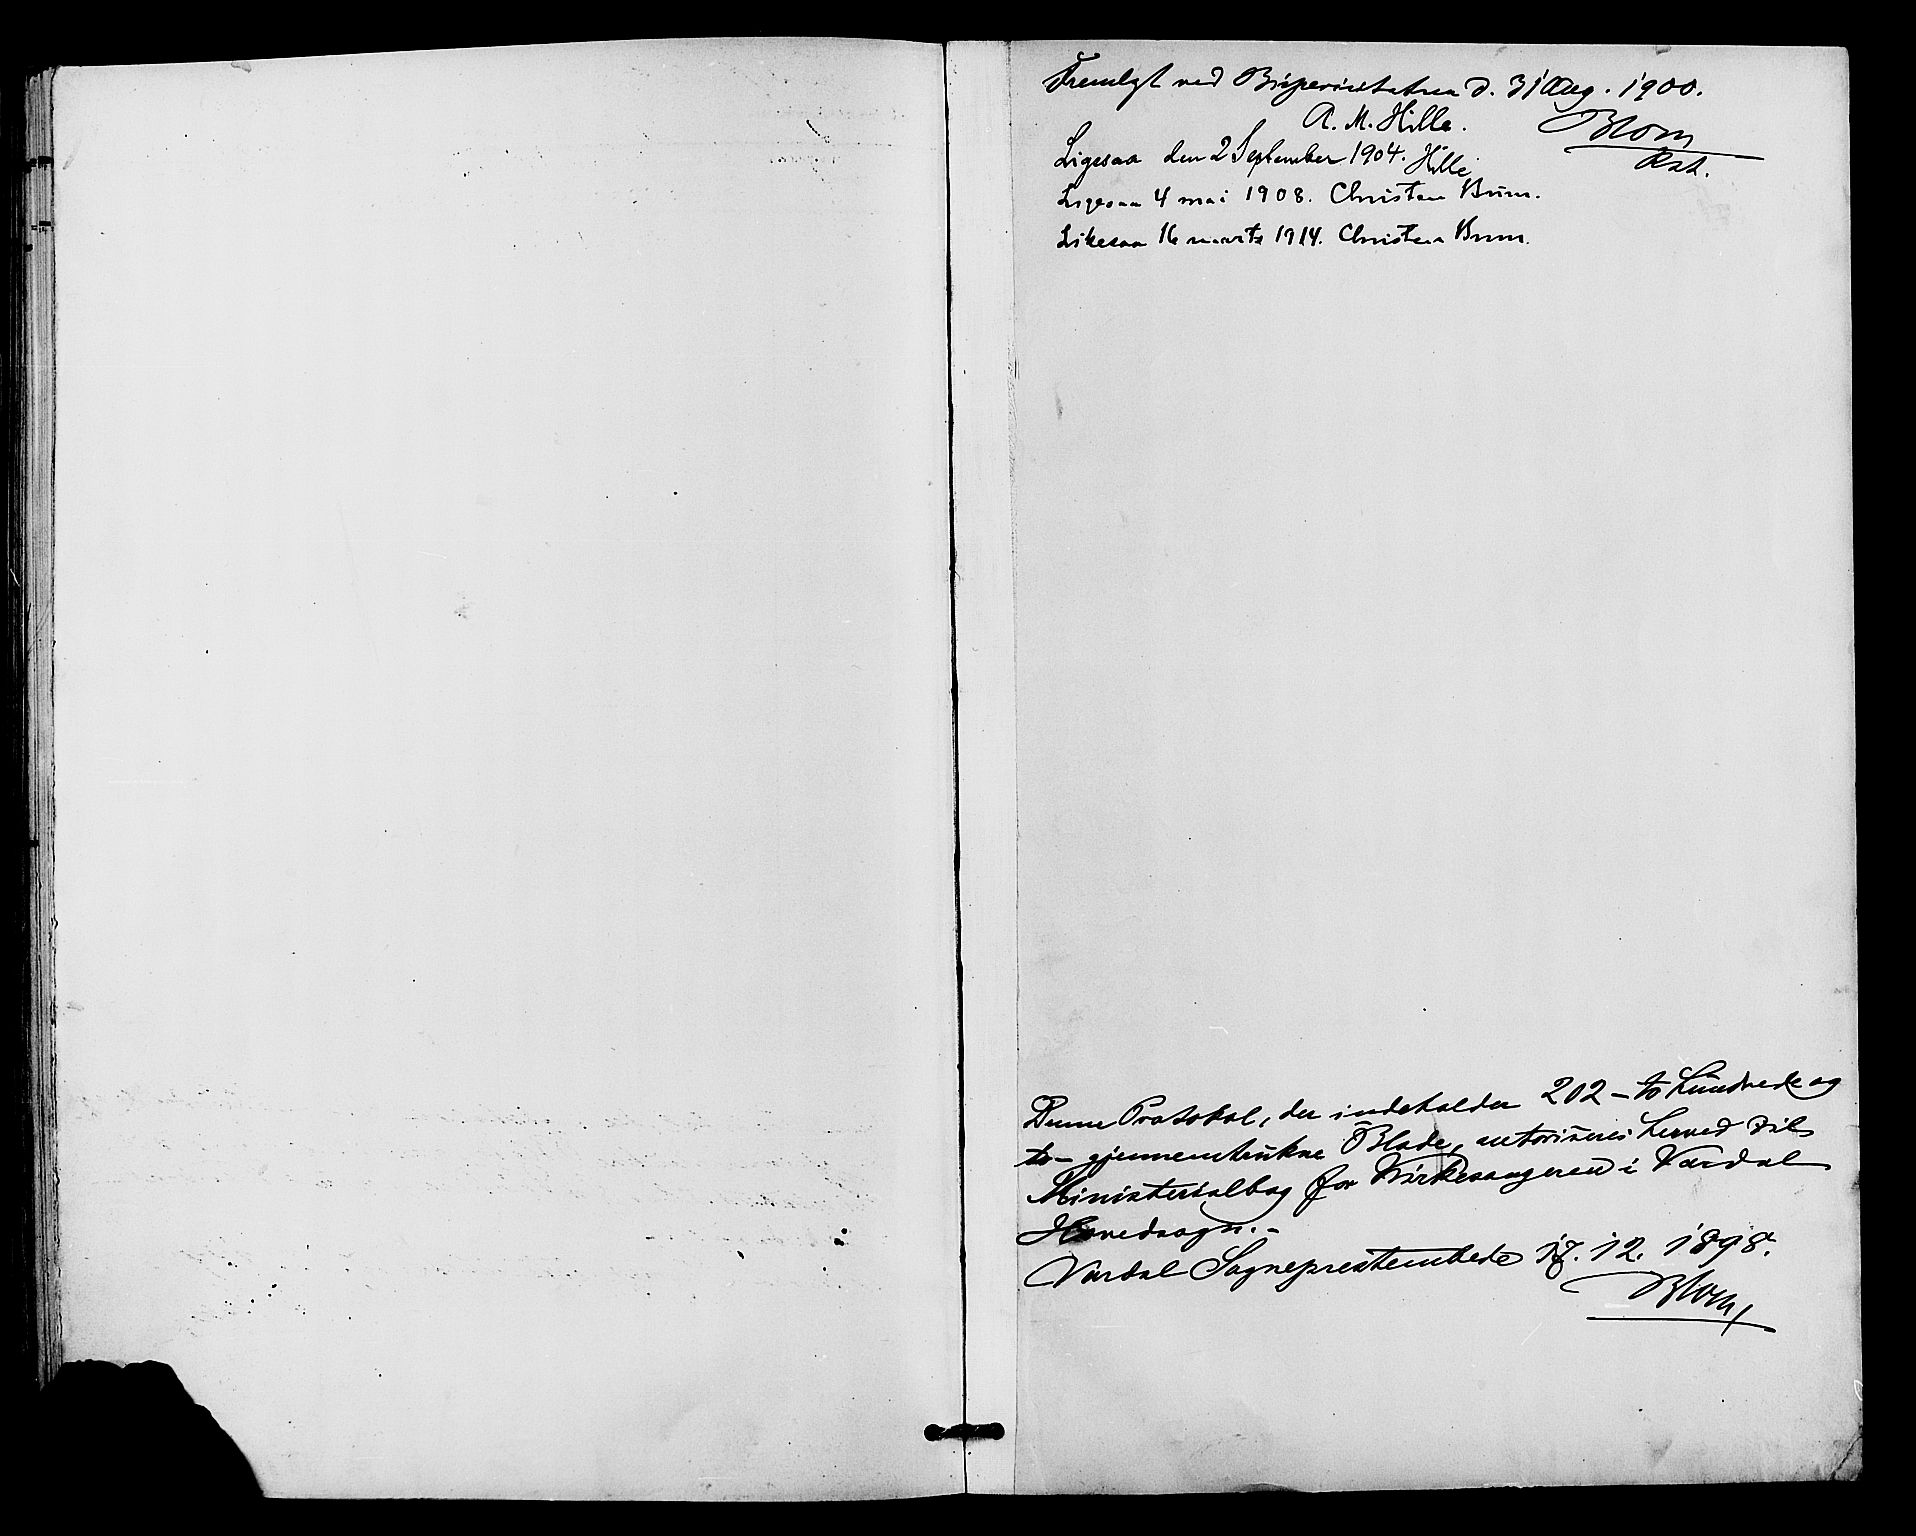 Fremlagt ved Bispevisitatsen d. 31 Aug. 1900.
A. M. Hille. Blom
Rst.
Ligesaa den 2 September 1904. Hille
Ligesaa 4 mai 1908. Christen Brun.
Likesaa 16 marts 1914. Christen Brun.
Denne Protokol, der indeholder 202 – to hundrede og
to – gjennemtrukne Blade, autoriseres herved til
Ministerialbog for Kirkesangeren i Vardal
Hovedsogn. –
Vardal Sogneprestembede 17. 12. 1898.
Blom